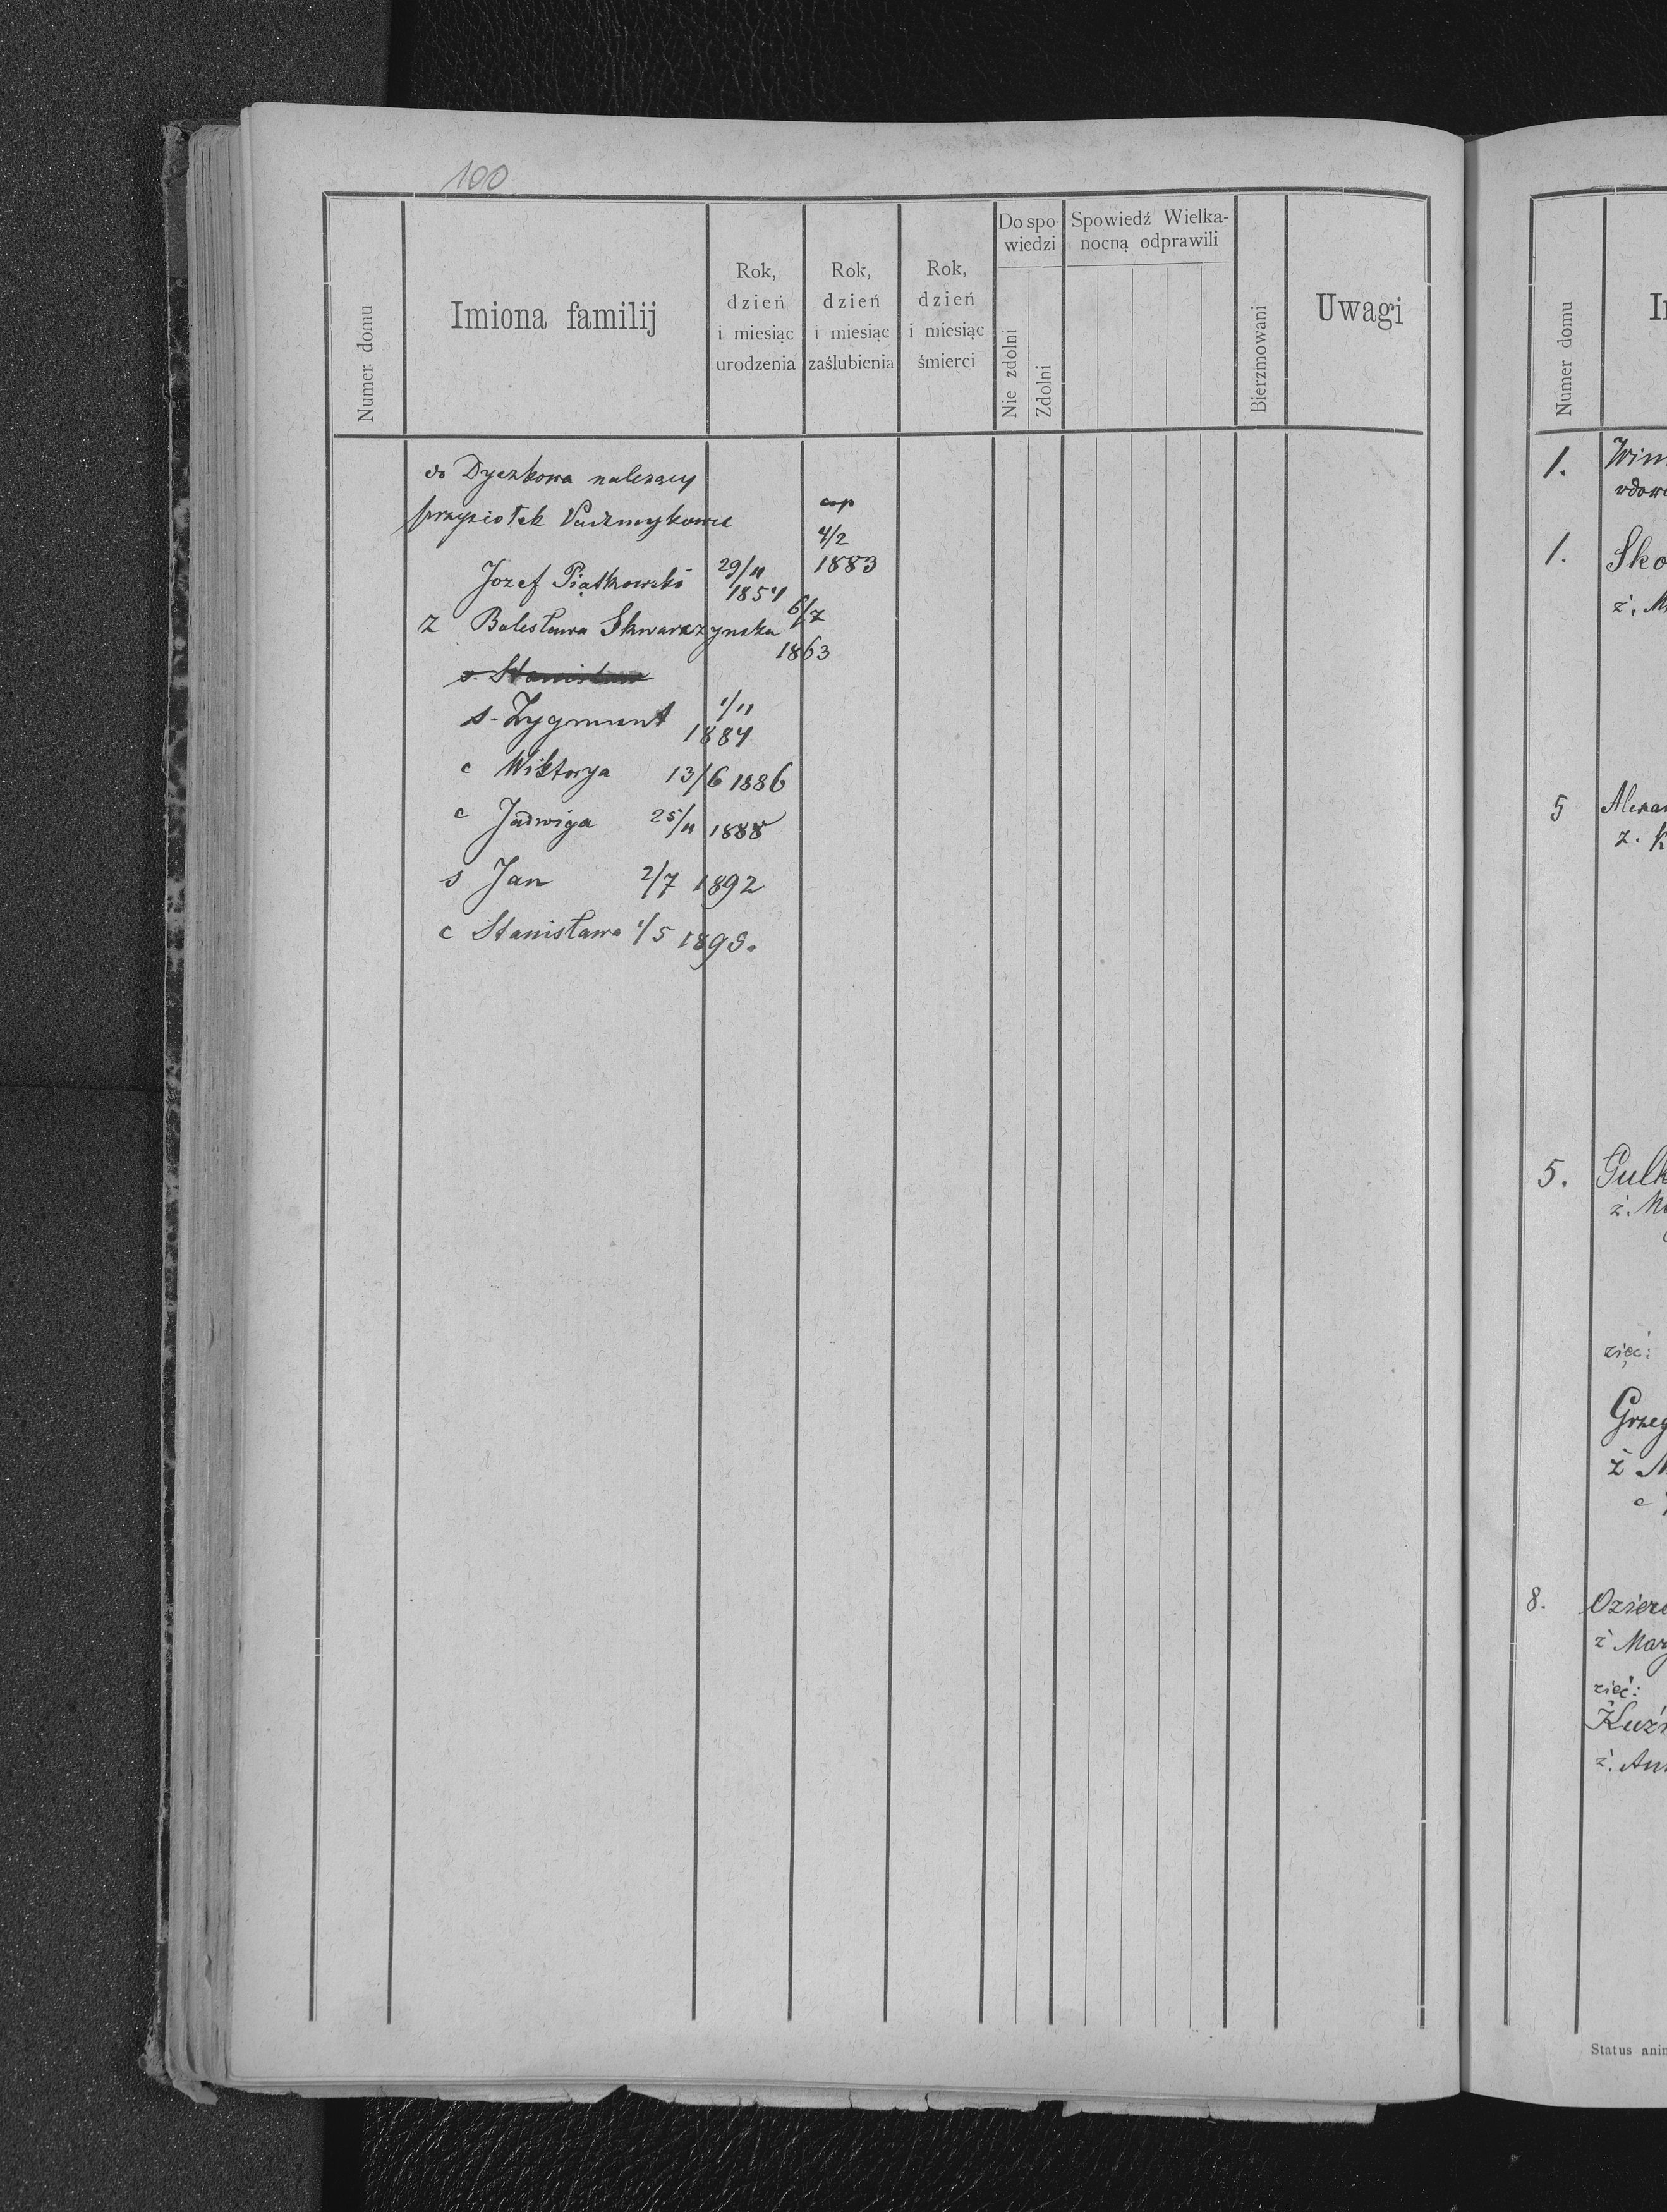 100
Numer domu
Imiona familij
Rok, dzień i miesiąc urodzenia
Rok, dzień i miesiąc zaślubienia
Rok, dzień i miesiąc śmierci
Do spo-
wiedzi
Nie zdolni
Zdolni
Spowiedź Wielka-
nocną odprawili
Bierzmowani
Uwagi
do Dyczkowa należący
przysiołek
cop
4/2
1883
Jozef Piątkowski 29/11
1854
z Bolesława Skwarczynska 6/7
1863
s. Stanisław
s. Zygmunt 1/11
1884
c Wiktorya 13/6 1886
c Jadwiga 25/11 1888
s Jan 2/7 1892
c Stanisława 1/5 1895.
Numer domu
1.
wdowa
1. Sko
ż. M
5
z. K
5. Gulk
ż.
zięć:
Grzeg
ż M
c
8.
ż Mary
zięć:
Kuźn
ż. An
Status anim